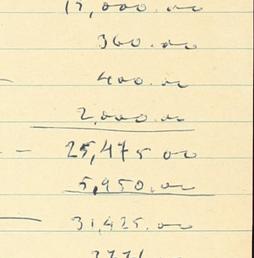 360.00
400.00
2,000.00
25,475 00
5,950.00
31,425.00